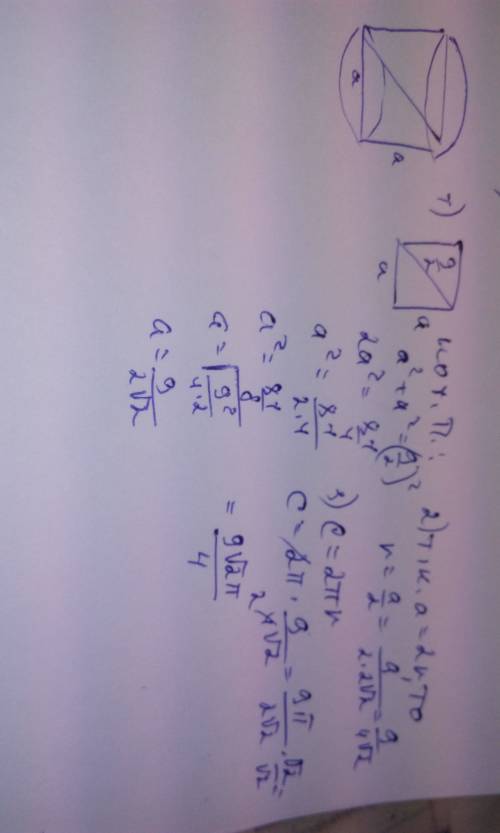 a
a
1)
9/2
a
a
по т. П.:
a² + a² = (9/2)²
2a² = 81/4
a² = 81/(2·4)
a² = 81/8
a = √(9²/(4·2))
a = 9/(2√2)
2) т.к. a = 2r, то
r = a/2 = 9/(2·2√2) = 9/(4√2)
3) C = 2πr
C = 2π · 9/(4√2) = 9π/(2√2) · √2/√2 =
= 9√2π/4